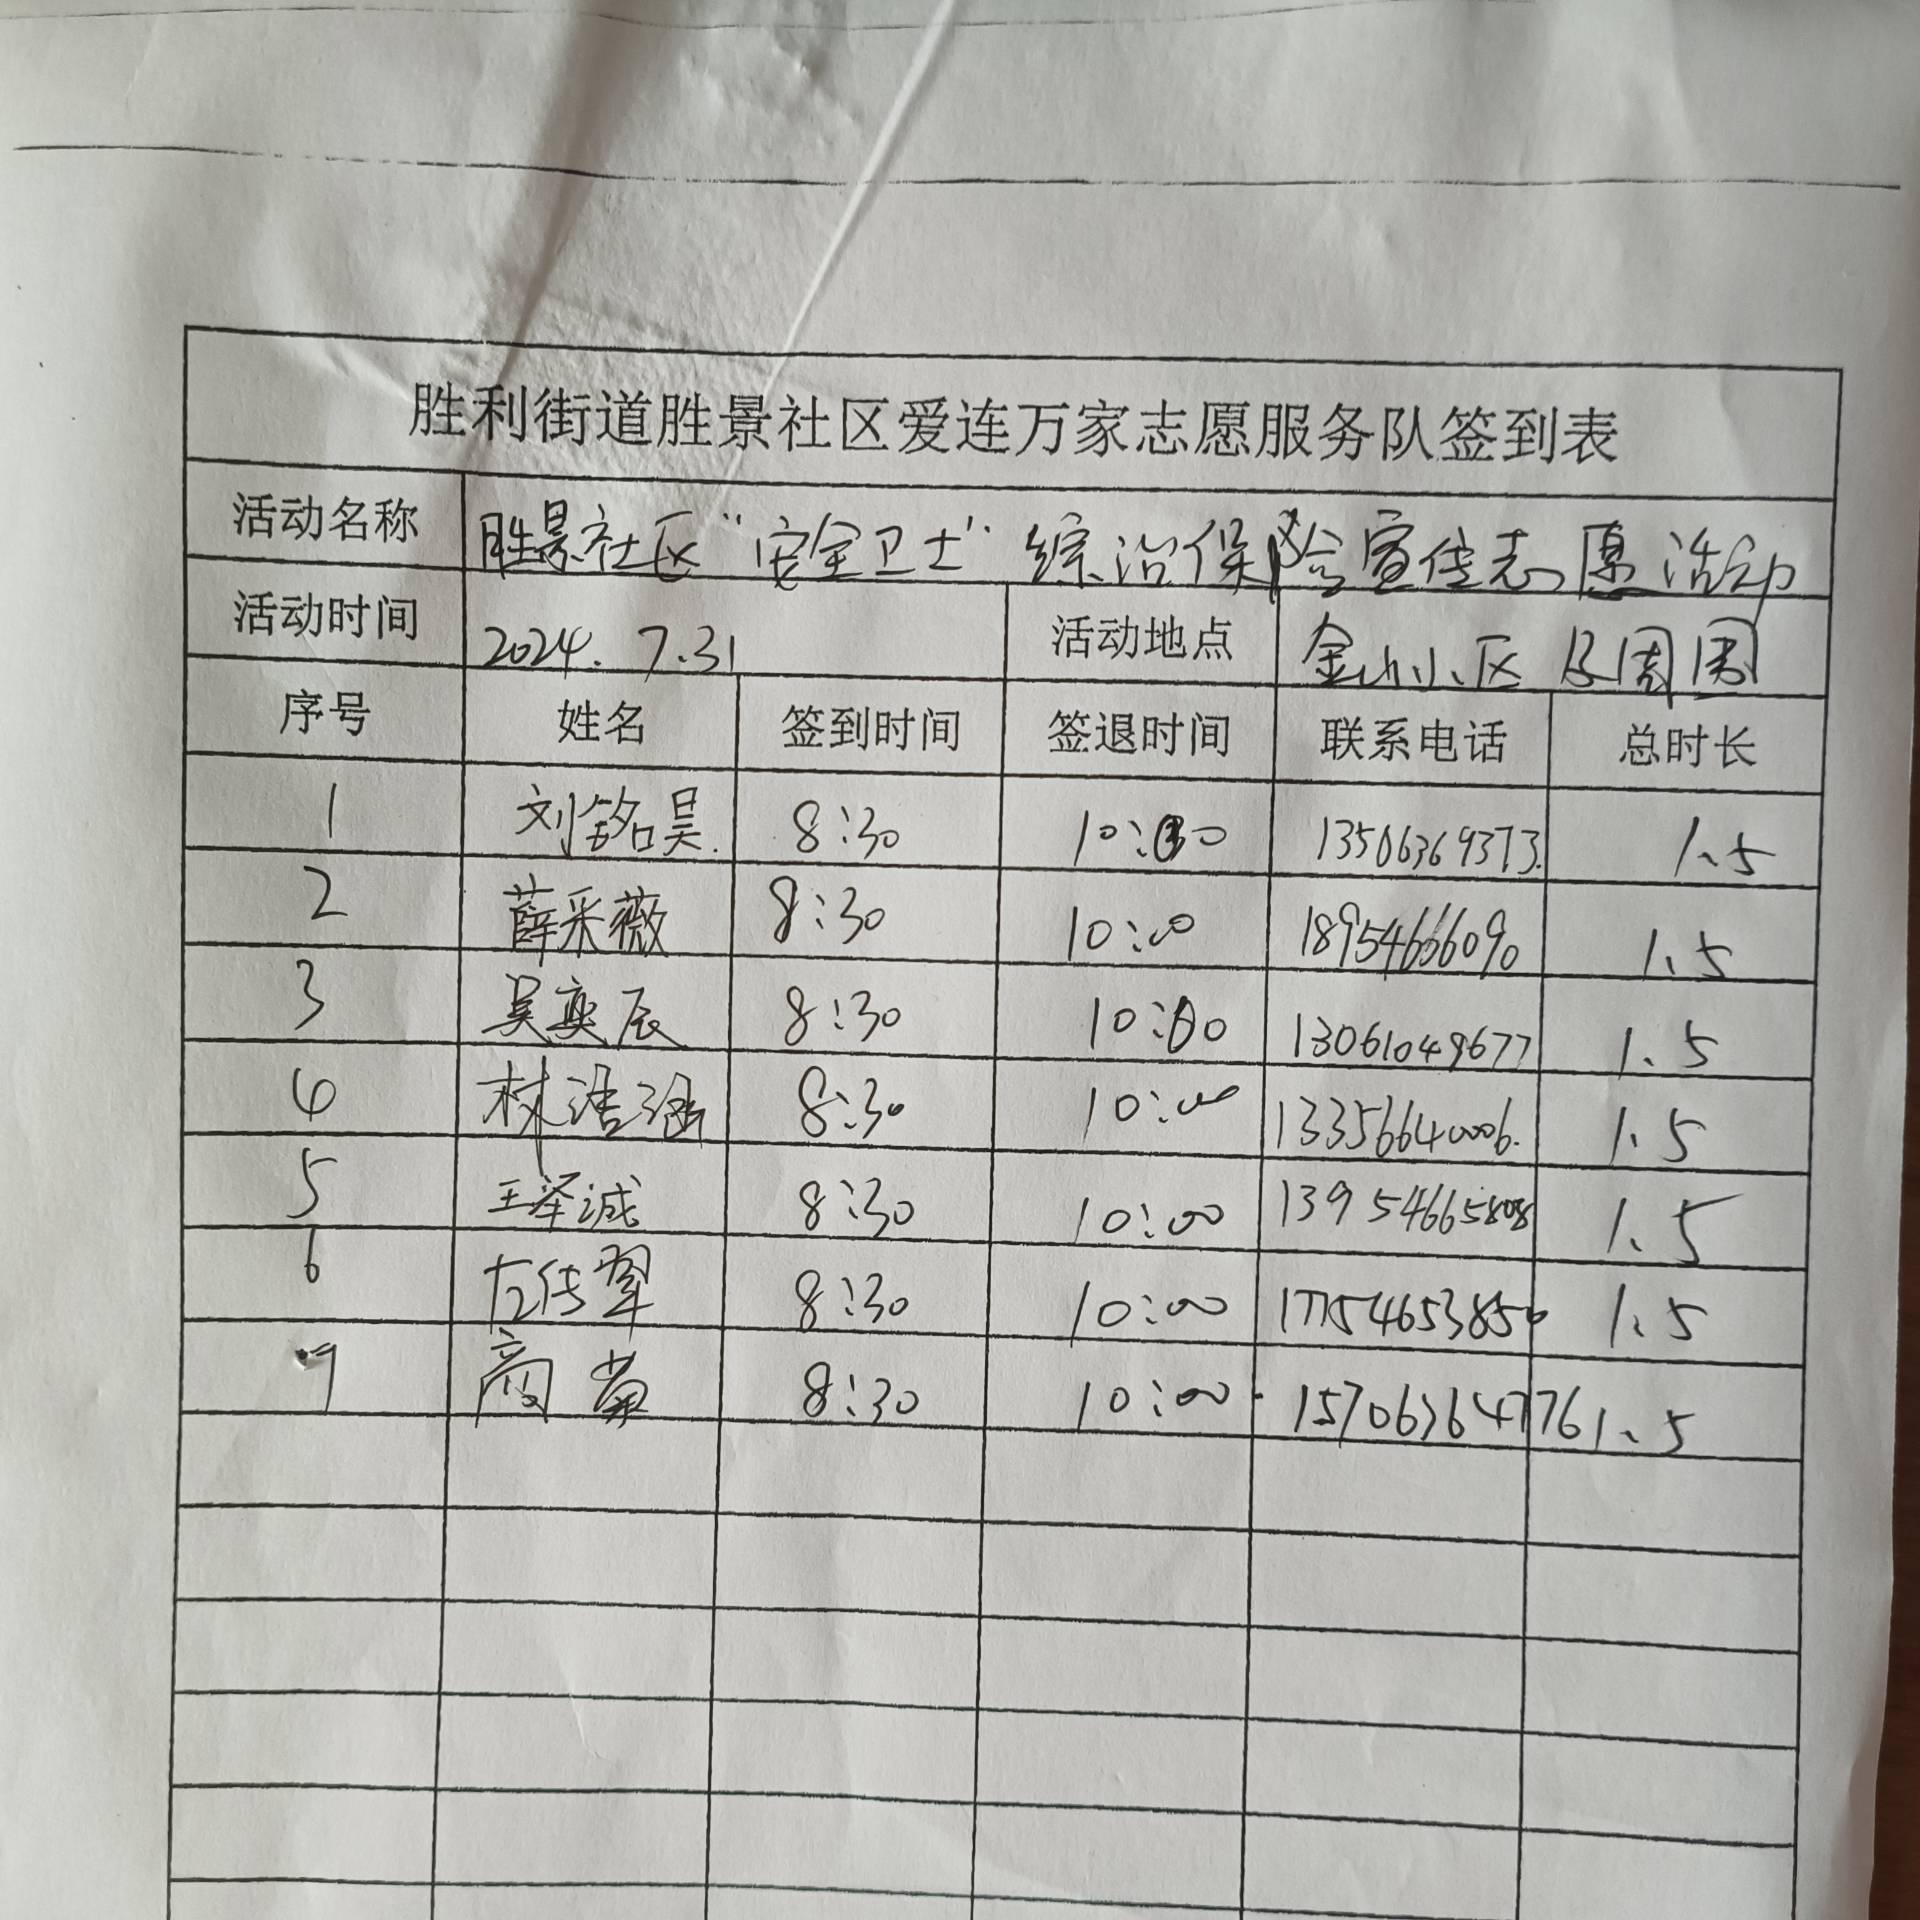 胜利街道胜景社区爱连万家志愿服务队签到表
活动名称 胜景社区“安全卫士”综治保险宣传志愿活动
活动时间 2024.7.31 活动地点 金山小区及周围
序号 姓名 签到时间 签退时间 联系电话 总时长
1 刘铭昊. 8:30 10:00 13506369373. 1.5
2 薛采薇 8:30 10:00 18954666090 1.5
3 吴奕辰 8:30 10:00 13061049677 1.5
4 林浩涵 8:30 10:00 13356640006. 1.5
5 王泽诚 8:30 10:00 13954665808 1.5
6 左传翠 8:30 10:00 17154653850 1.5
7 商 8:30 10:00 15706364776 1.5